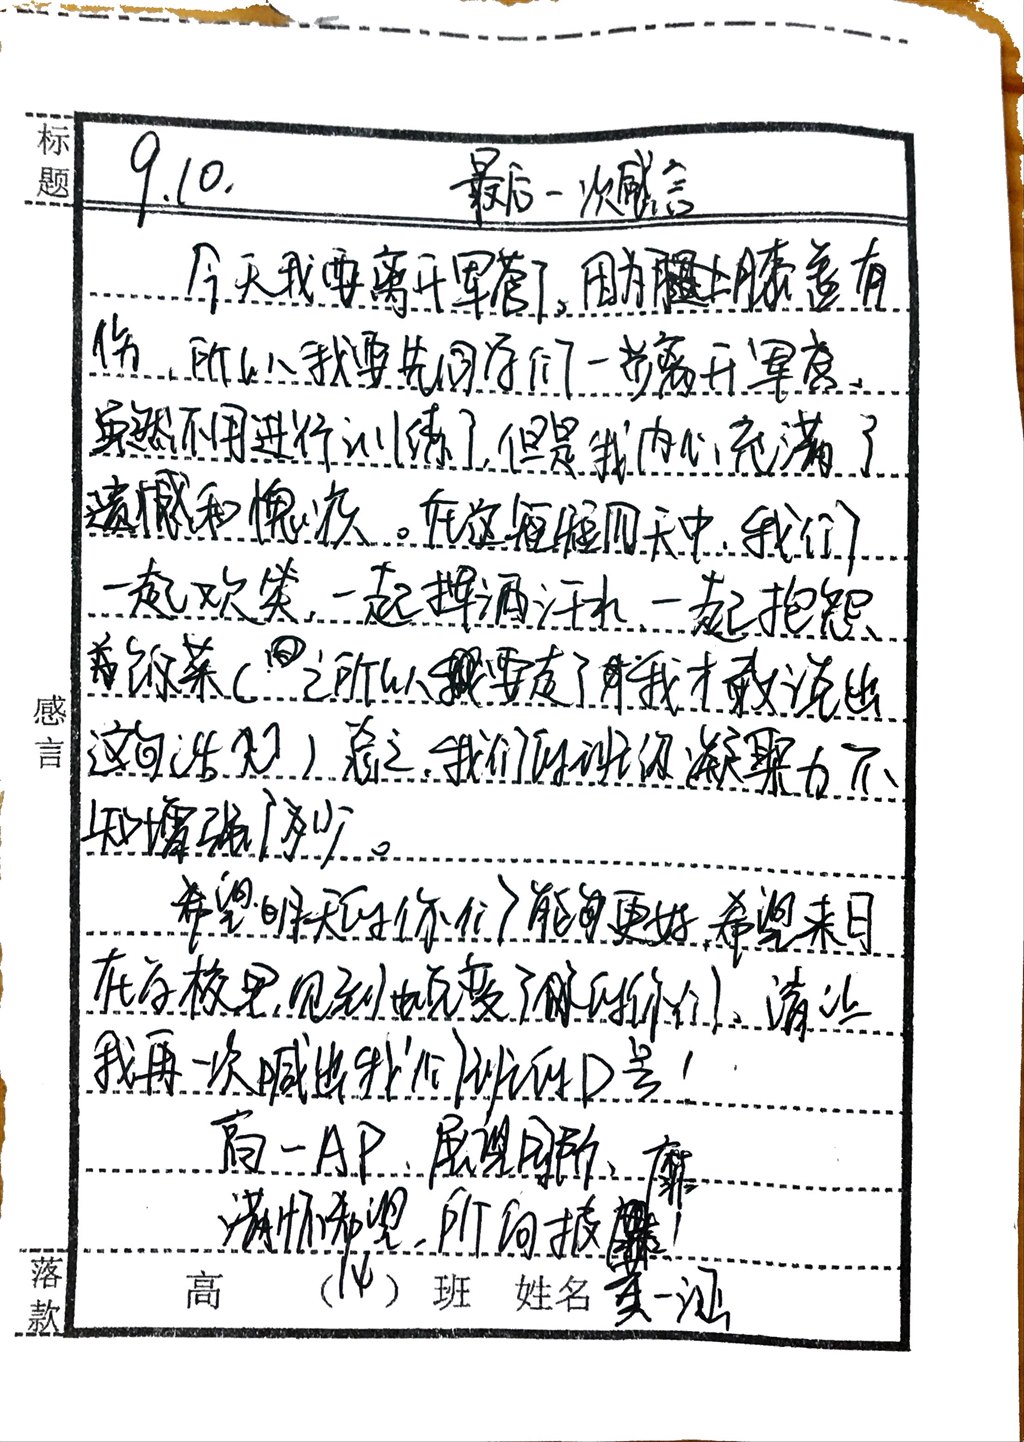 标题
9.10. 最后一次感言
今天我要离开军营了。因为腿上膝盖有
伤，所以我要先同学们一步离开军营，
虽然不用进行训练了，但是我内心充满了
遗憾和愧疚。在这短短四天中，我们
一起欢笑，一起挥洒汗水，一起抱怨
着饭菜（ 之所以我要走了我才敢说出
这句话 ）总之，我们的班级凝聚力不
知增强了多少。
希望明天的你们能更好，希望来日
在学校里，见到蜕变了的你们，请让
我再一次喊出我们班的口号！
高一AP，展望同所，
满怀希望，所向披靡！
感言
落款
高（14）班 姓名 黄一涵